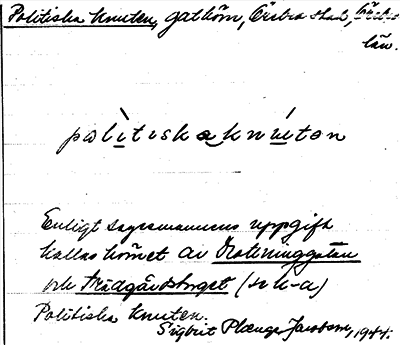 Politiska knuten, gathörn, Örebro stad, Örebro
län.
politiska knuten
Enligt sagesmannens uppgift
kallas hörnet av Drottninggatan
och Trädgårdstorget (n k-a)
Politiska knuten.
Sigbrit Plænge Jacobson, 1944.